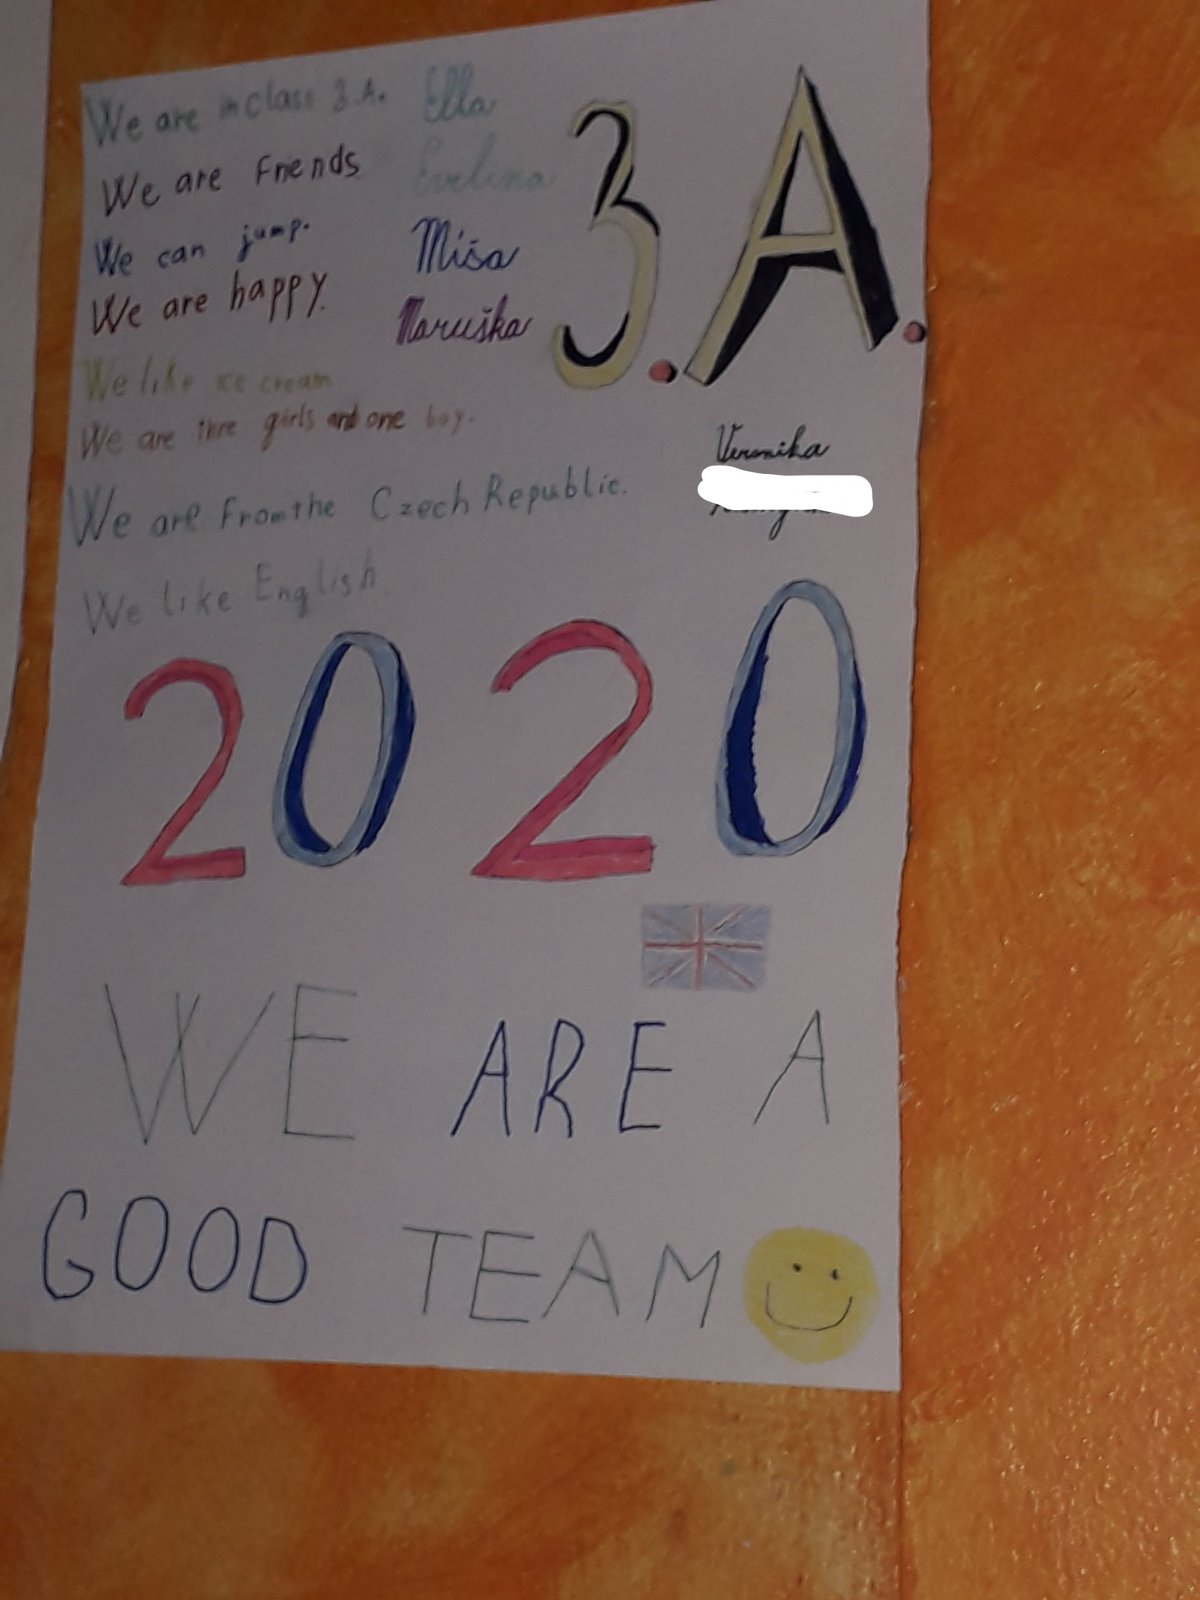 We are in class 3.A.
Ella
We are Friends
Evelina
We can jump.
Míša
We are happy.
Maruška
3.A.
We like ice cream
We are thre girls and one boy.
Veronika
We are From the Czech Republic.
We like English.
2020
WE ARE A
GOOD TEAM